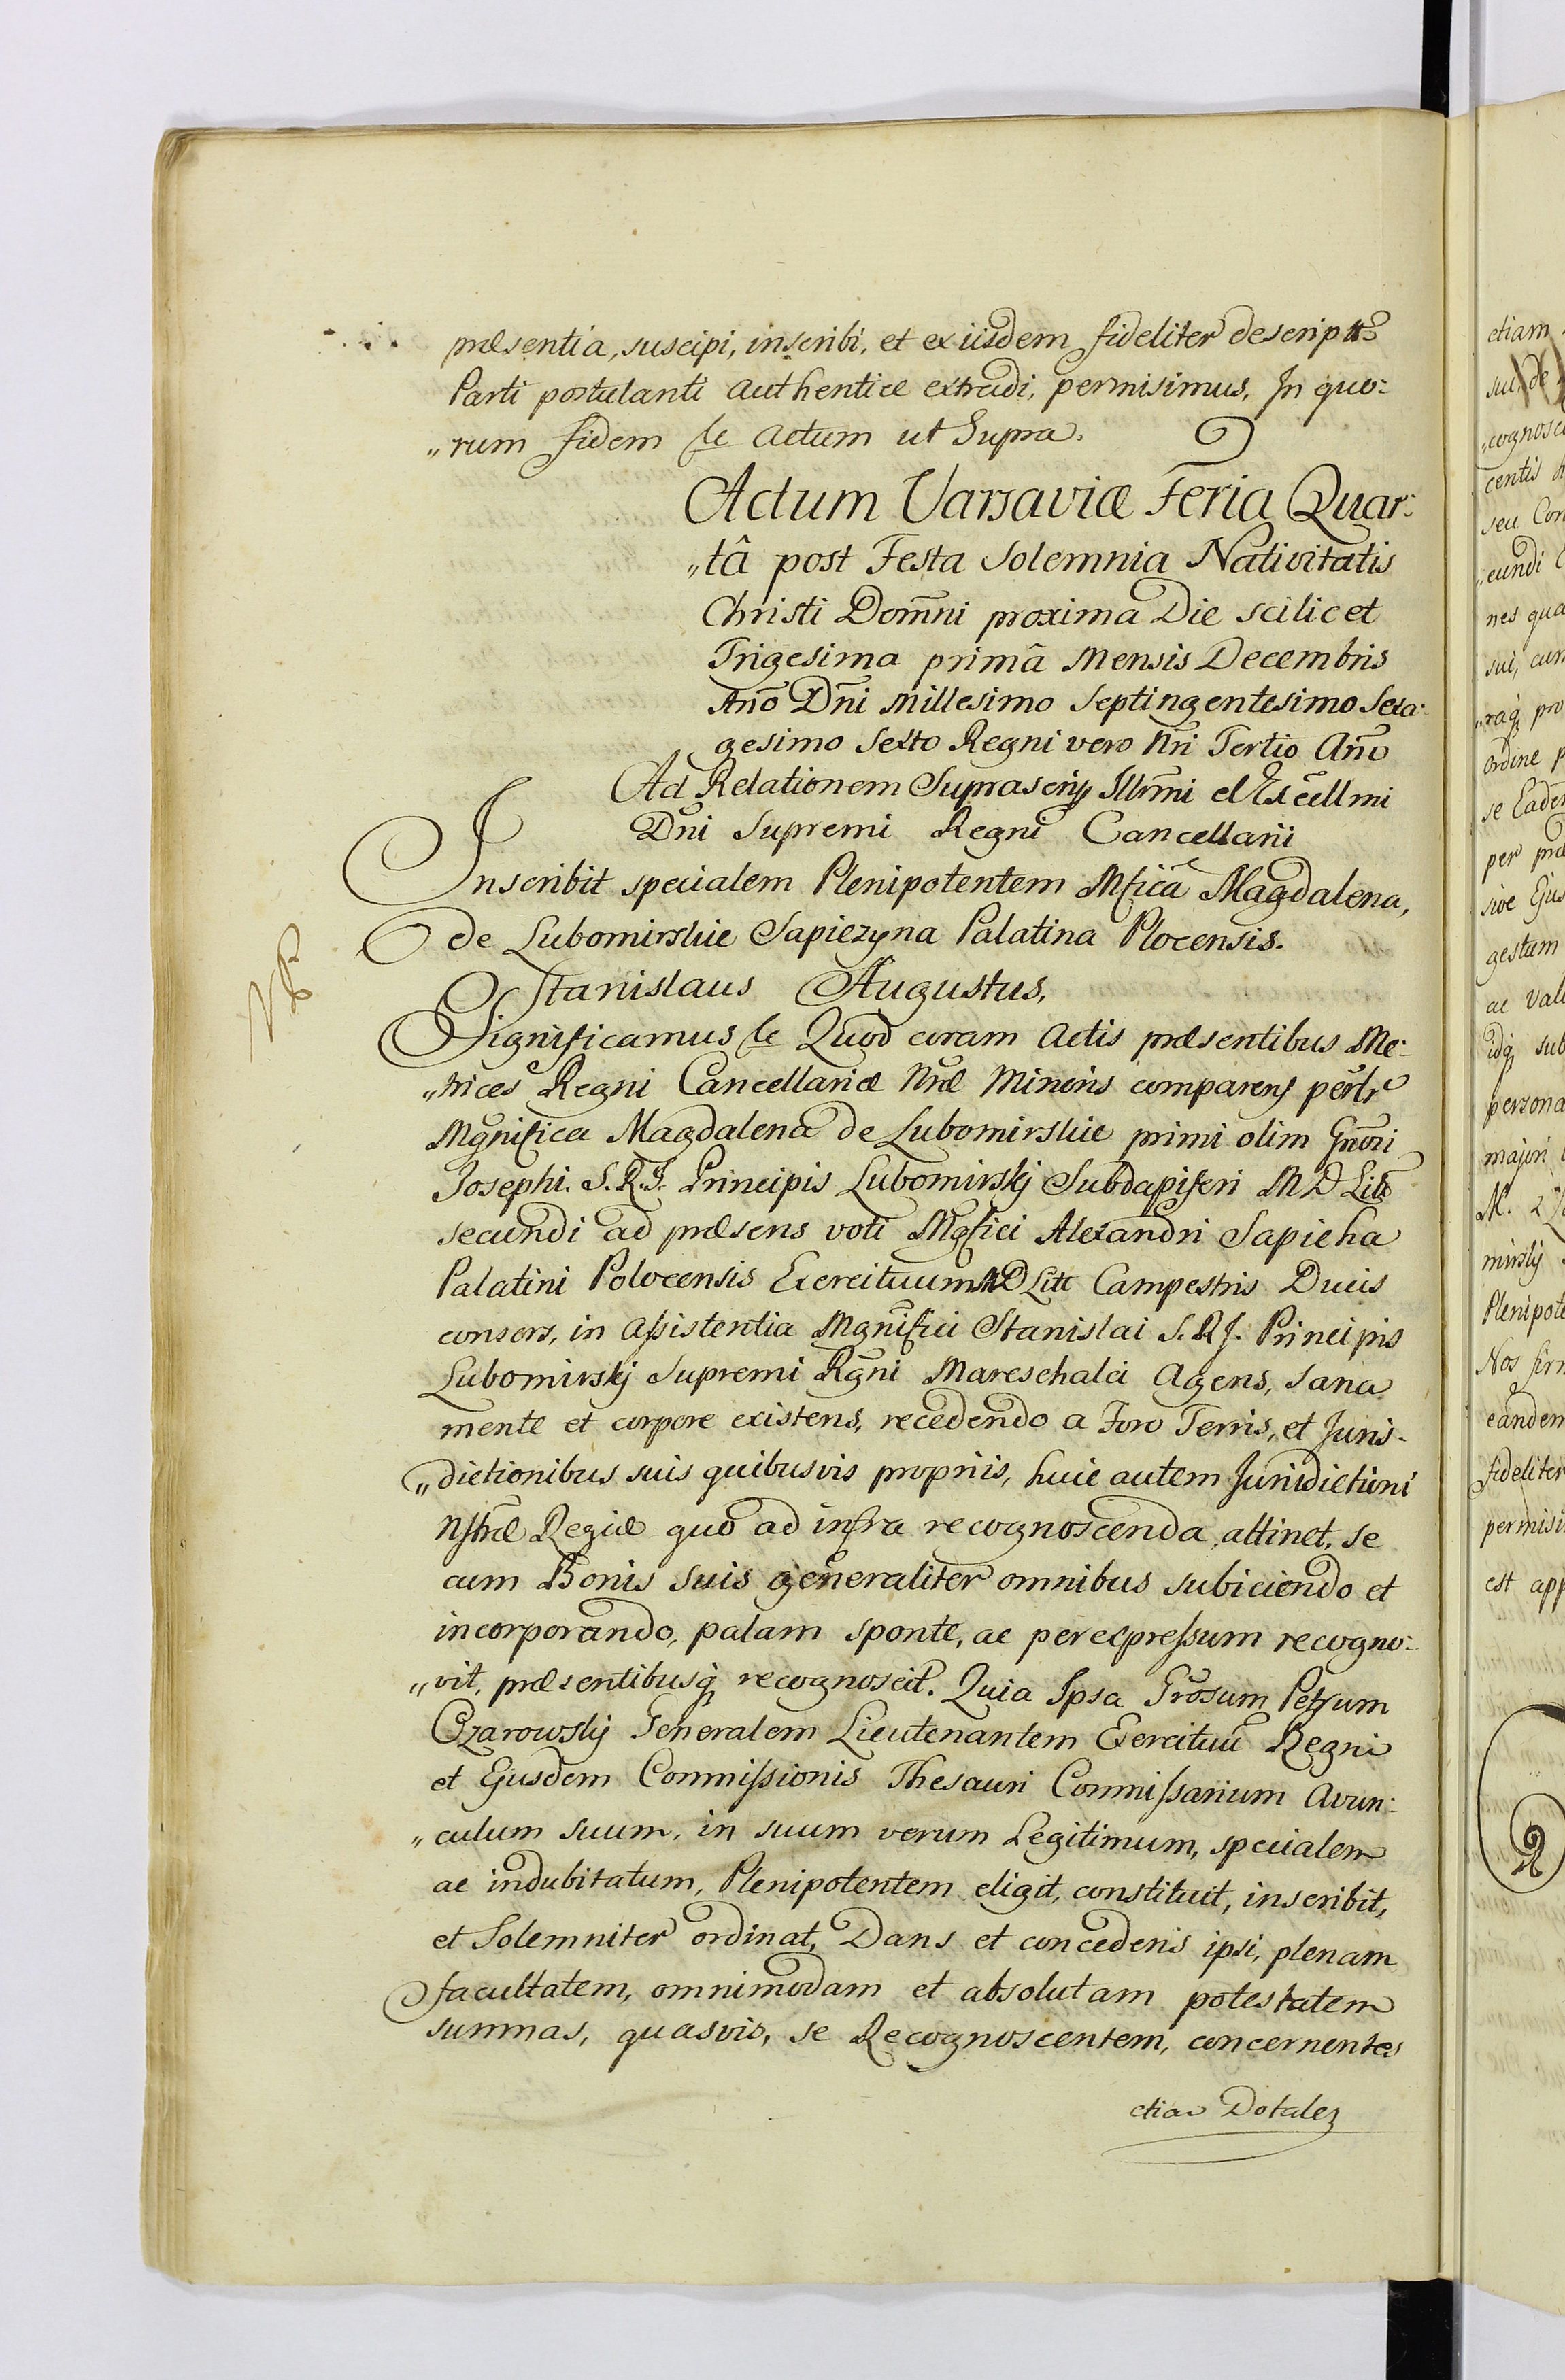 præsentia, suscipi, inscribi, et ex iisdem fideliter descripta
Parti postulanti authentice extradi, permisimus, In quo:
„rum fidem &c Actum ut Supra.
Actum Varsaviæ Feria Quar:
„tâ post Festa Solemnia Nativitatis
Christi Dom̄ni proxima Die scilicet
Trigesima primâ Mensis Decembris
Añо Dn̄i Millesimo Septingentesimo Sexa:
gesimo Sexto Regni vero Nr̄i Tertio Añо
Ad Relationem Suprascrip Illr̄mi et Excellmi
Dn̄i Supremi Regni Cancellarii
Inscribit specialem Plenipotentem Mfica Magdalena,
de Lubomirskie Sapiezyna Palatina Plocensis.
NB
Stanislaus Augustus,
Significamus &c Quod coram Actis præsentibus Me:
„trices Regni Cancellariæ Nr̄æ Minoris comparens perlr
Mgnifica Magdalena de Lubomirskie primi olim
Josephi. S. R. I. Principis Lubomirskj Subdapiferi M D Litt
secundi ad præsens voti Mgfici Alexandri Sapieha
Palatini Polocensis Exercituum M D Litt Campestris Ducis
consors, in Assistentia Mgnifici Stanislai S. R I. Principis
Lubomirskj Supremi Rgni Mareschalci Agens, sana
mente et corpore existens, recedendo a Foro Terris, et Juris:
„dictionibus suis quibusvis propriis, huic autem Jurisdictioni
Nstræ Regiæ quo ad infra recognoscenda, attinet, se
cum Bonis suis generaliter omnibus subiciendo et
incorporando, palam sponte, ac per expressum recogno:
„vit, præsentibusq recognoscit. Quia Ipsa Grosum Petrum
Ozarowskj Generalem Lieutenantem Exercituū Regni
et Ejusdem Commissionis Thesauri Commissarium Avun:
„culum suum, in suum verum Legitimum, specialem
ac indubitatum, Plenipotentem eligit, constituit, inscribit,
et Solemniter ordinat, Dans et concedens ipsi, plenam
facultatem, omnimodam et absolutam potestatem
summas, quasvis, se Recognoscentem, concernentes
etiam Dotales
etiam
sui, de
„cognosc
centis
seu Con
„eundi
nes qua
sui, cum
„raq pro
ordine p
se Eaden
per præ
sive Ejus
gestum
ac vali
idq sub
persona
majori
M. 2
mirskj
Plenipote
Nos firm
eandem
fideliter
permisi
est app